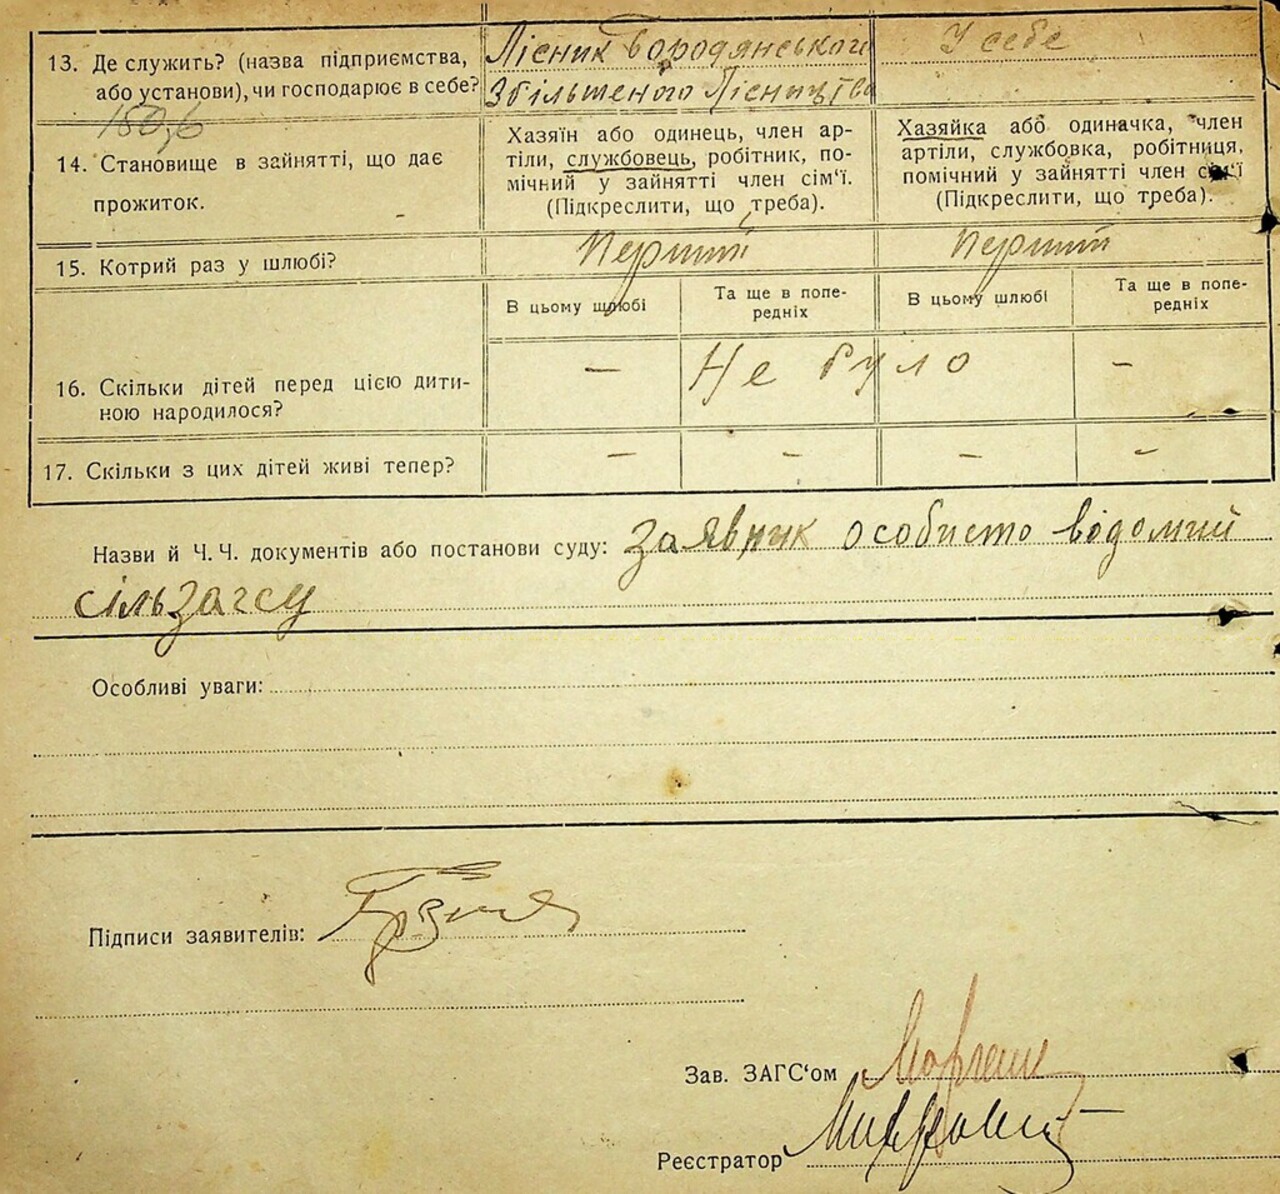 13. Де служить? (назва підприємства,
або установи), чи господарює в себе?
Лісник Бородянського
Збільшеного Лісництва
У себе
150,6
14. Становище в зайнятті, що дає
прожиток.
Хазяїн або одинець, член ар-
тіли, службовець, робітник, по-
мічний у зайнятті член сім'ї.
(Підкреслити, що треба).
Хазяйка або одиначка, член
артіли, службовка, робітниця,
помічний у зайнятті член сім'ї
(Підкреслити, що треба).
15. Котрий раз у шлюбі?
Перший
Перший
В цьому шлюбі
Та ще в попе-
редніх
В цьому шлюбі
Та ще в попе-
редніх
16. Скільки дітей перед цією дити-
ною народилося?
– Не було –
17. Скільки з цих дітей живі тепер?
– – – –
Назви й Ч. Ч. документів або постанови суду: Заявник особисто відомий
сільзагсу
Особливі уваги:
Підписи заявителів:
Зав. ЗАГС'ом
Реєстратор